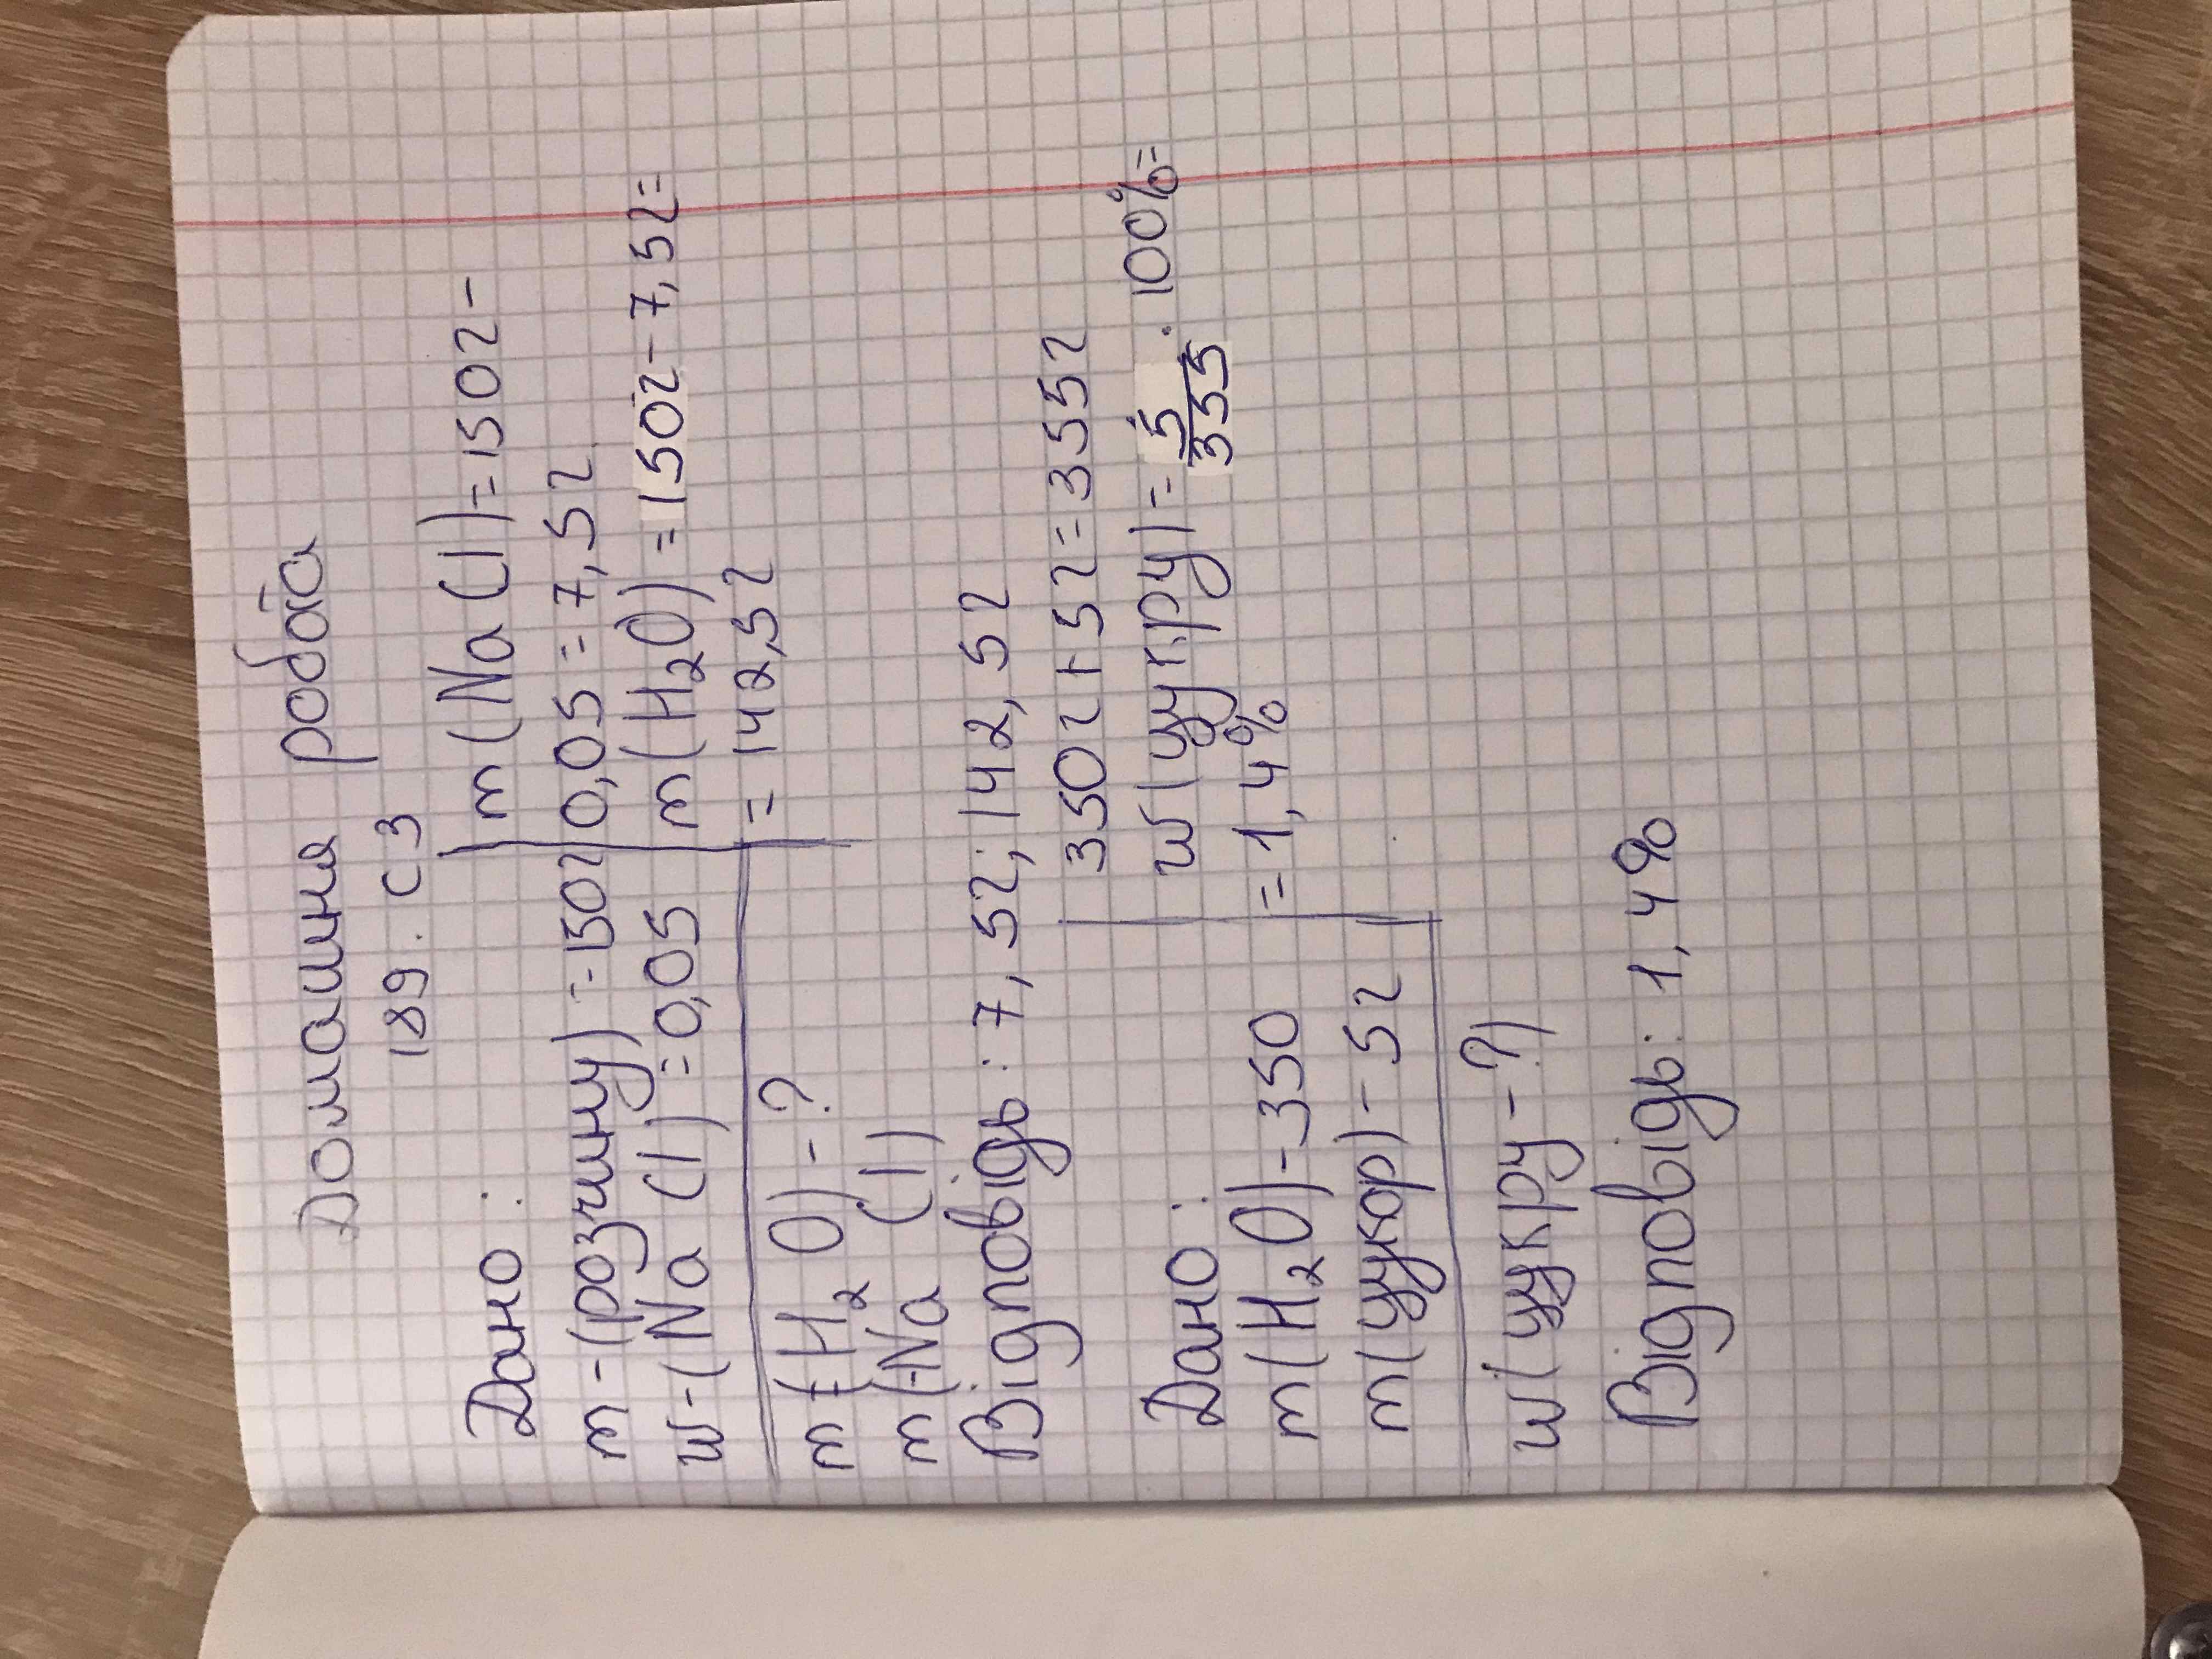 Домашня робота
189. с 3
Дано:
m-(розчину)-150г
w-(NaCl)=0,05
m-(H₂O)-?
m(-NaCl)
m(NaCl)=150г-
0,05=7,5г
m(H₂O)=150г-7,5г=
=142,5г
Відповідь: 7,5г; 142,5г
Дано:
m(H₂O)-350
m(цукор)-5г
w(цукру-?)
350г+5г=355г
w(цукру)=5/355·100%=
=1,4%
Відповідь: 1,4%